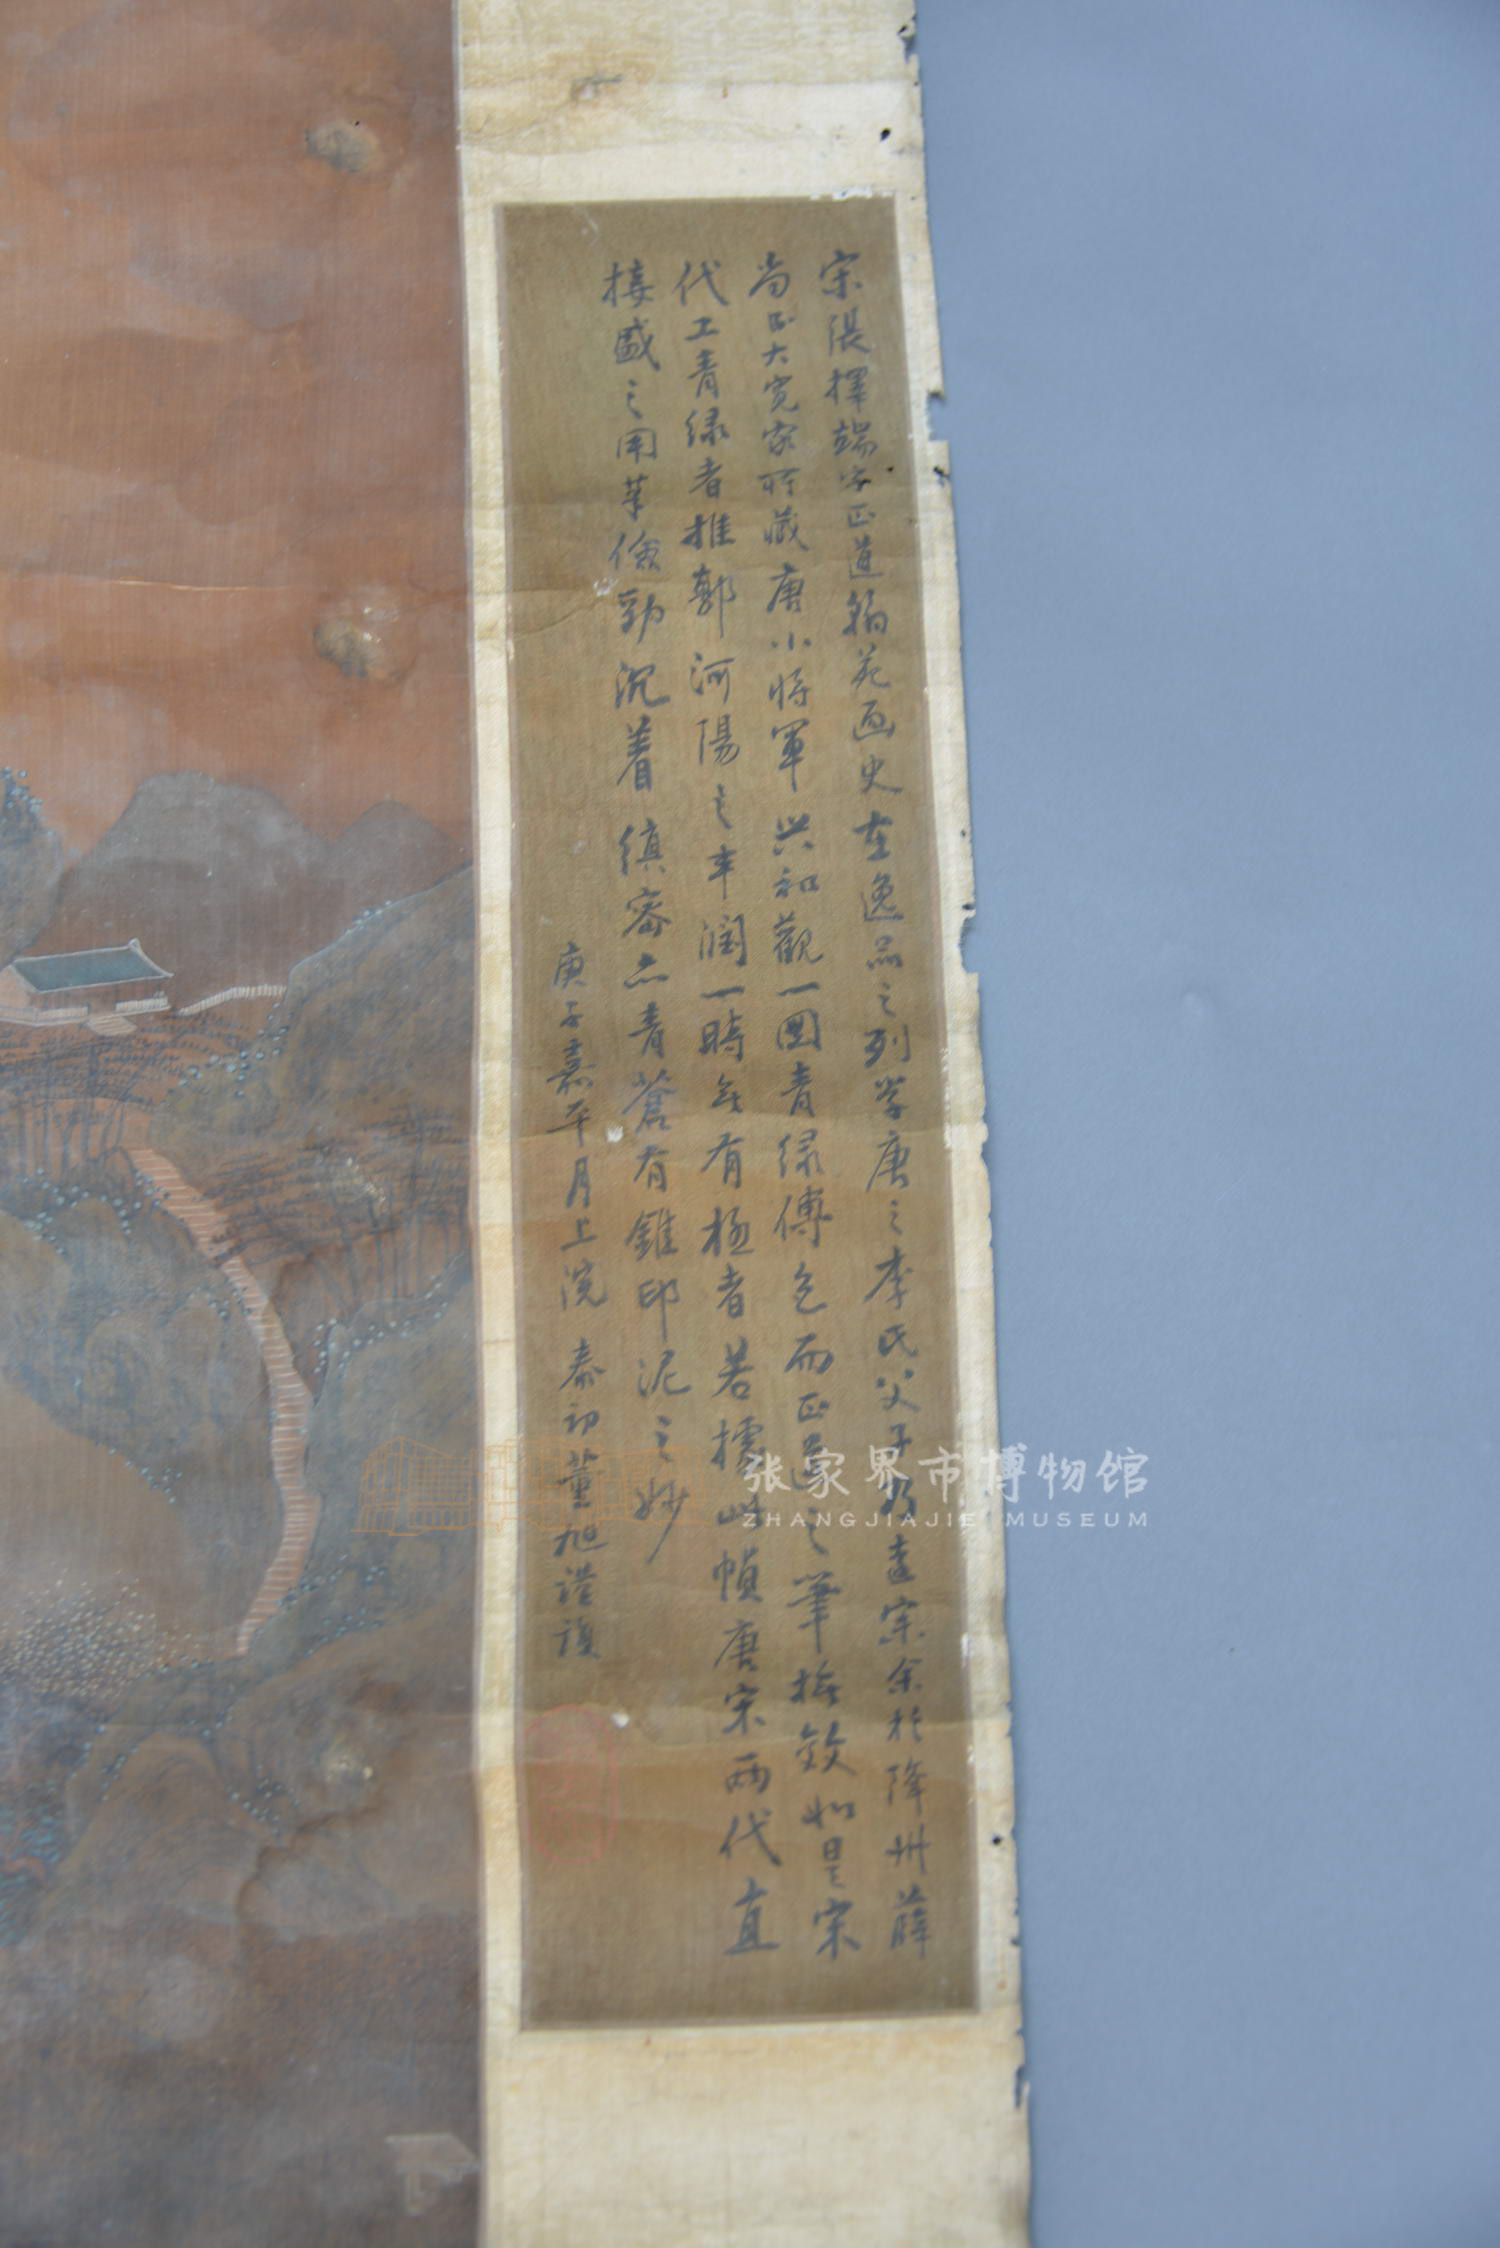 宋張擇端字正道翰苑画史在逸品之列学唐之李氏父子乃遠宗余於降州薛
尚正大寛家所藏唐小將軍共和觀一圖青緑傅色而正道之筆 效如是宋
代工青緑者推郭河陽之丰潤一時無有極者若 此幀唐宋兩代直
接盛之用筆 勁沉着縝密六青蒼有錐印泥之妙
庚子嘉平月上浣 泰初董旭
张家界市博物馆
ZHANGJIAJIE MUSEUM